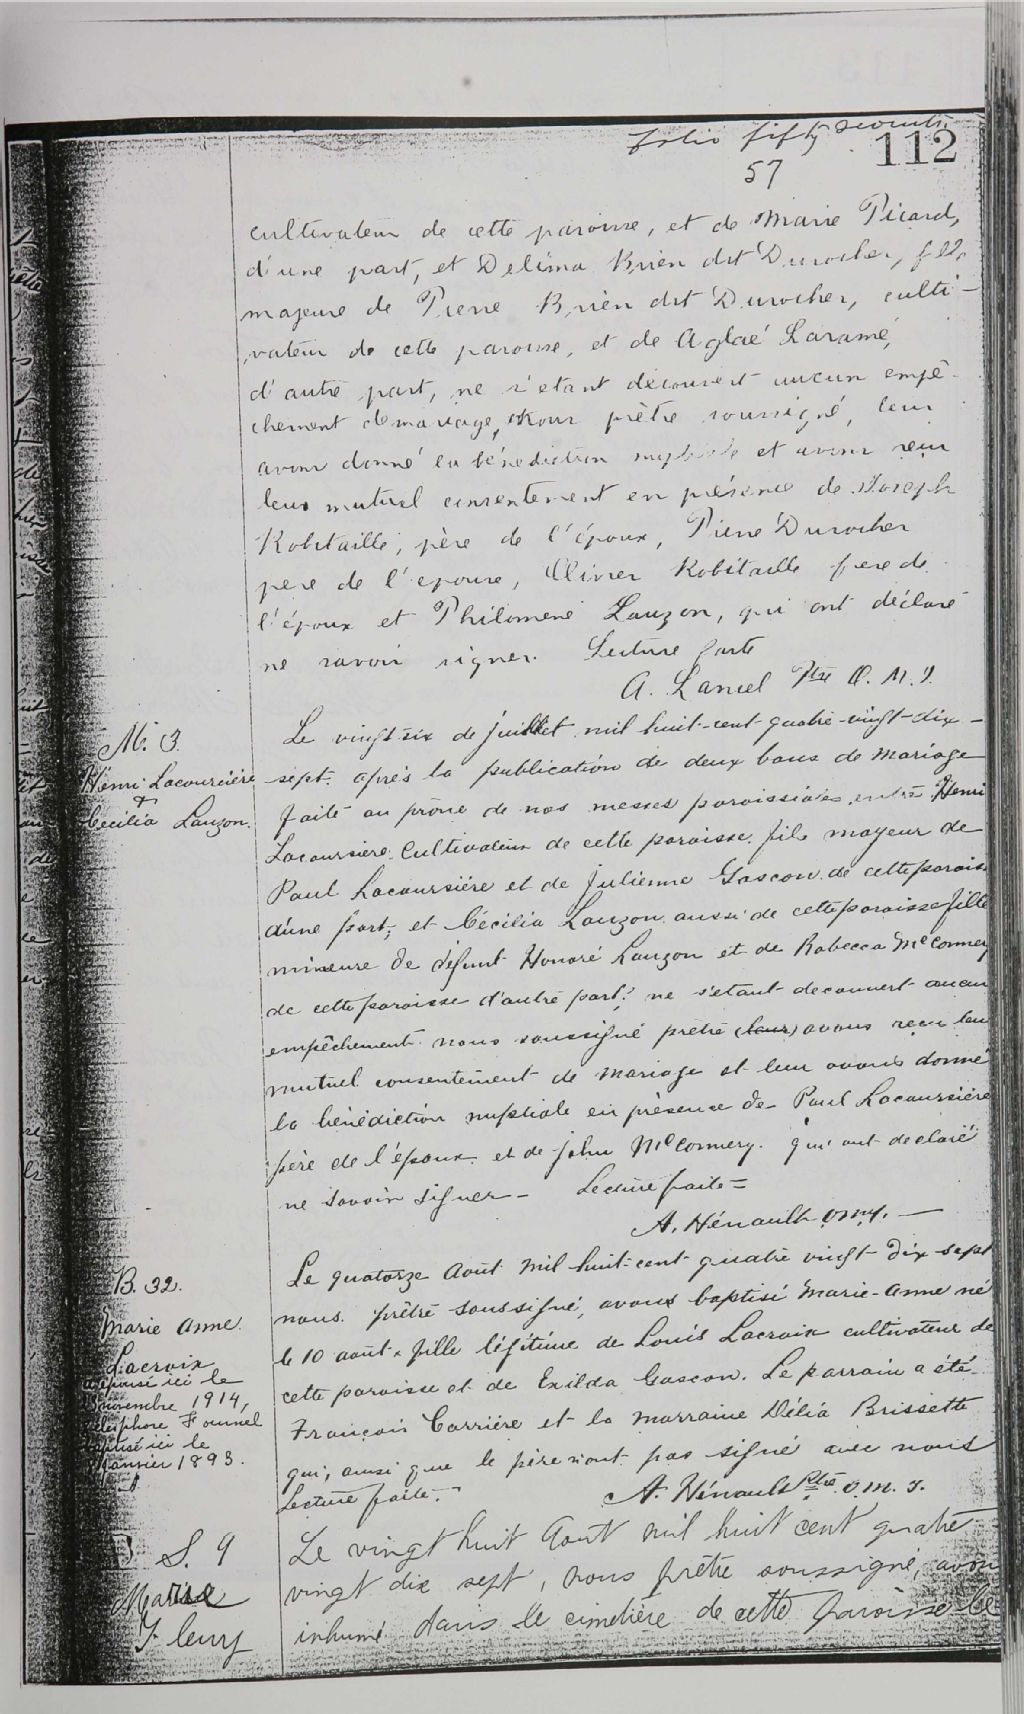 folio fifty seventh
112
57
cultivateur de cette paroisse, et de Marie Picard,
d'une part, et Delima Brien dit Durocher, fille
majeure de Pierre Brien dit Durocher, culti-
vateur de cette paroisse, et de Aglaé Laramé,
d'autre part, ne s'etant découvert aucun empê-
chement de mariage, Nous prêtre soussigné, leur
avons donné la bénédiction nuptiale et avons reçu
leur mutuel consentement en présence de Joseph
Robitaille, père de l'époux, Pierre Durocher
pere de l'epouse, Olivier Robitaille frere de
l'époux et Philomène Lauzon, qui ont déclaré
ne savoir signer. Lecture faite
A. Lancel Ptre O. M. I.
M. 3.
Henri Lacourcière
+
Cecilia Lauzon.
Le vingt-six de juillet mil huit-cent quatre-vingt-dix-
sept. après la publication de deux bans de mariage
faite au prône de nos messes paroissiales entre Henri
Lacoursière. Cultivateur de cette paroisse. fils majeur de
Paul Lacoursière et de Julienne Gascon. de cette parois
d'une part, et Cécilia Lauzon. aussi de cette paroisse fille
mineure de défunt Honoré Lauzon et de Rabecca McConnery
de cette paroisse d'autre part; ne s'étant decouvert aucun
empêchement. nous soussigné prêtre (leur) avons reçu leur
mutuel consentement de mariage et leur avons donné
la bénédiction nuptiale en présence de Paul Lacoursière
père de l'époux. et de John McConnery. qui ont declaré
ne savoir signer - Lecture faite =
A. Hénault omy. —
B. 32.
Marie Anne.
Lacroix
épousé ici le
novembre 1914,
Fournel
baptisé ici le
janvier 1893.
Le quatorze Août mil huit-cent quatre vingt dix sept
nous. prêtre soussigné, avons baptisé Marie-Anne né
le 10 août x fille légitime de Louis Lacroix cultivateur de
cette paroisse et de Exilda Gascon. Le parrain a été
François Carrière et la marraine Délia Brissette
qui, ainsi que le père n'ont pas signé avec nous
Lecture faite.- A. Hénault Ptre o. m. I.
S. 9
Marie
Fleury
Le vingt huit Août mil huit cent quatre
vingt dix sept, nous prêtre soussigné, avons
inhumé dans le cimetière de cette paroisse le